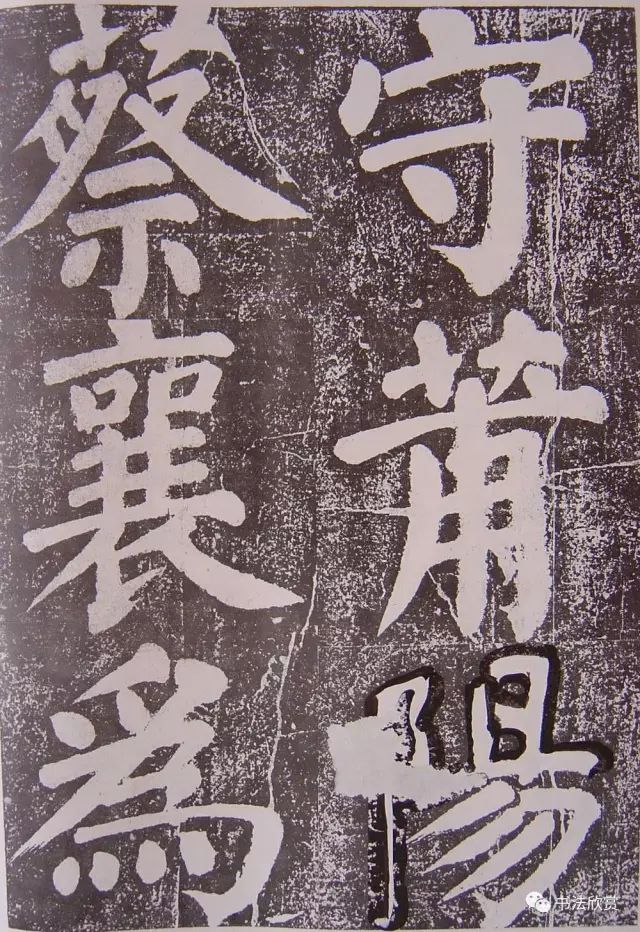 守莆陽
蔡襄爲
书法欣赏